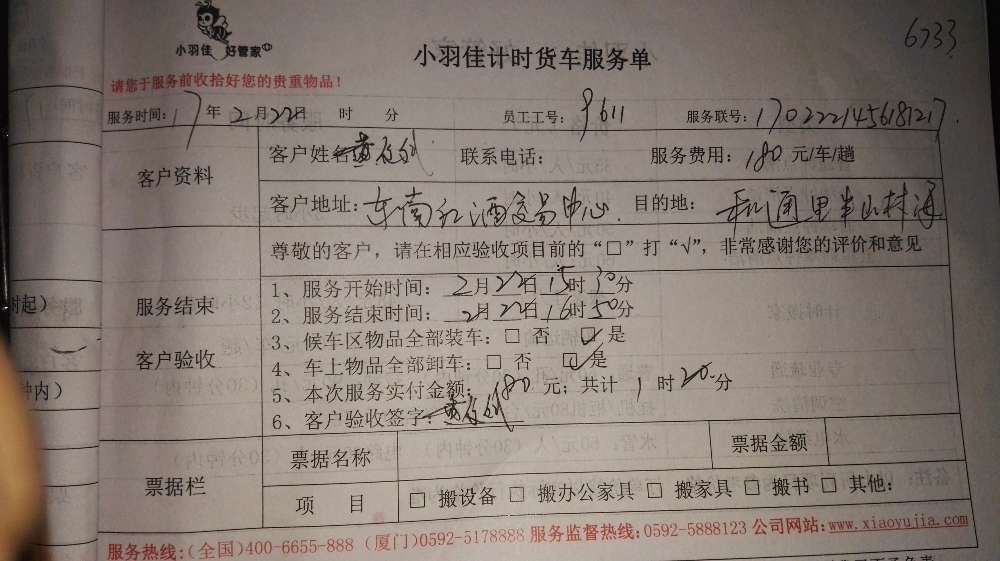 小羽佳 好管家
小羽佳计时货车服务单
6733
请您于服务前收拾好您的贵重物品！
服务时间：17年2月22日 时 分 员工工号：9611 服务联号：170222145618127
客户资料
客户姓名 联系电话： 服务费用：180元/车/趟
客户地址：东南红酒交易中心 目的地：和通里半山林海
尊敬的客户，请在相应验收项目前的“□”打“√”，非常感谢您的评价和意见
服务结束
客户验收
1、服务开始时间：2月22日15时30分
2、服务结束时间：2月22日16时50分
3、候车区物品全部装车：□ 否 ☑ 是
4、车上物品全部卸车：□ 否 ☑ 是
5、本次服务实付金额：180元；共计1时20分
6、客户验收签字：
票据栏
票据名称 票据金额
项 目 □ 搬设备 □ 搬办公家具 □ 搬家具 □ 搬书 □ 其他：
服务热线：(全国)400-6655-888 (厦门)0592-5178888 服务监督热线：0592-5888123 公司网站：www.xiaoyujia.com
时起）
钟内）